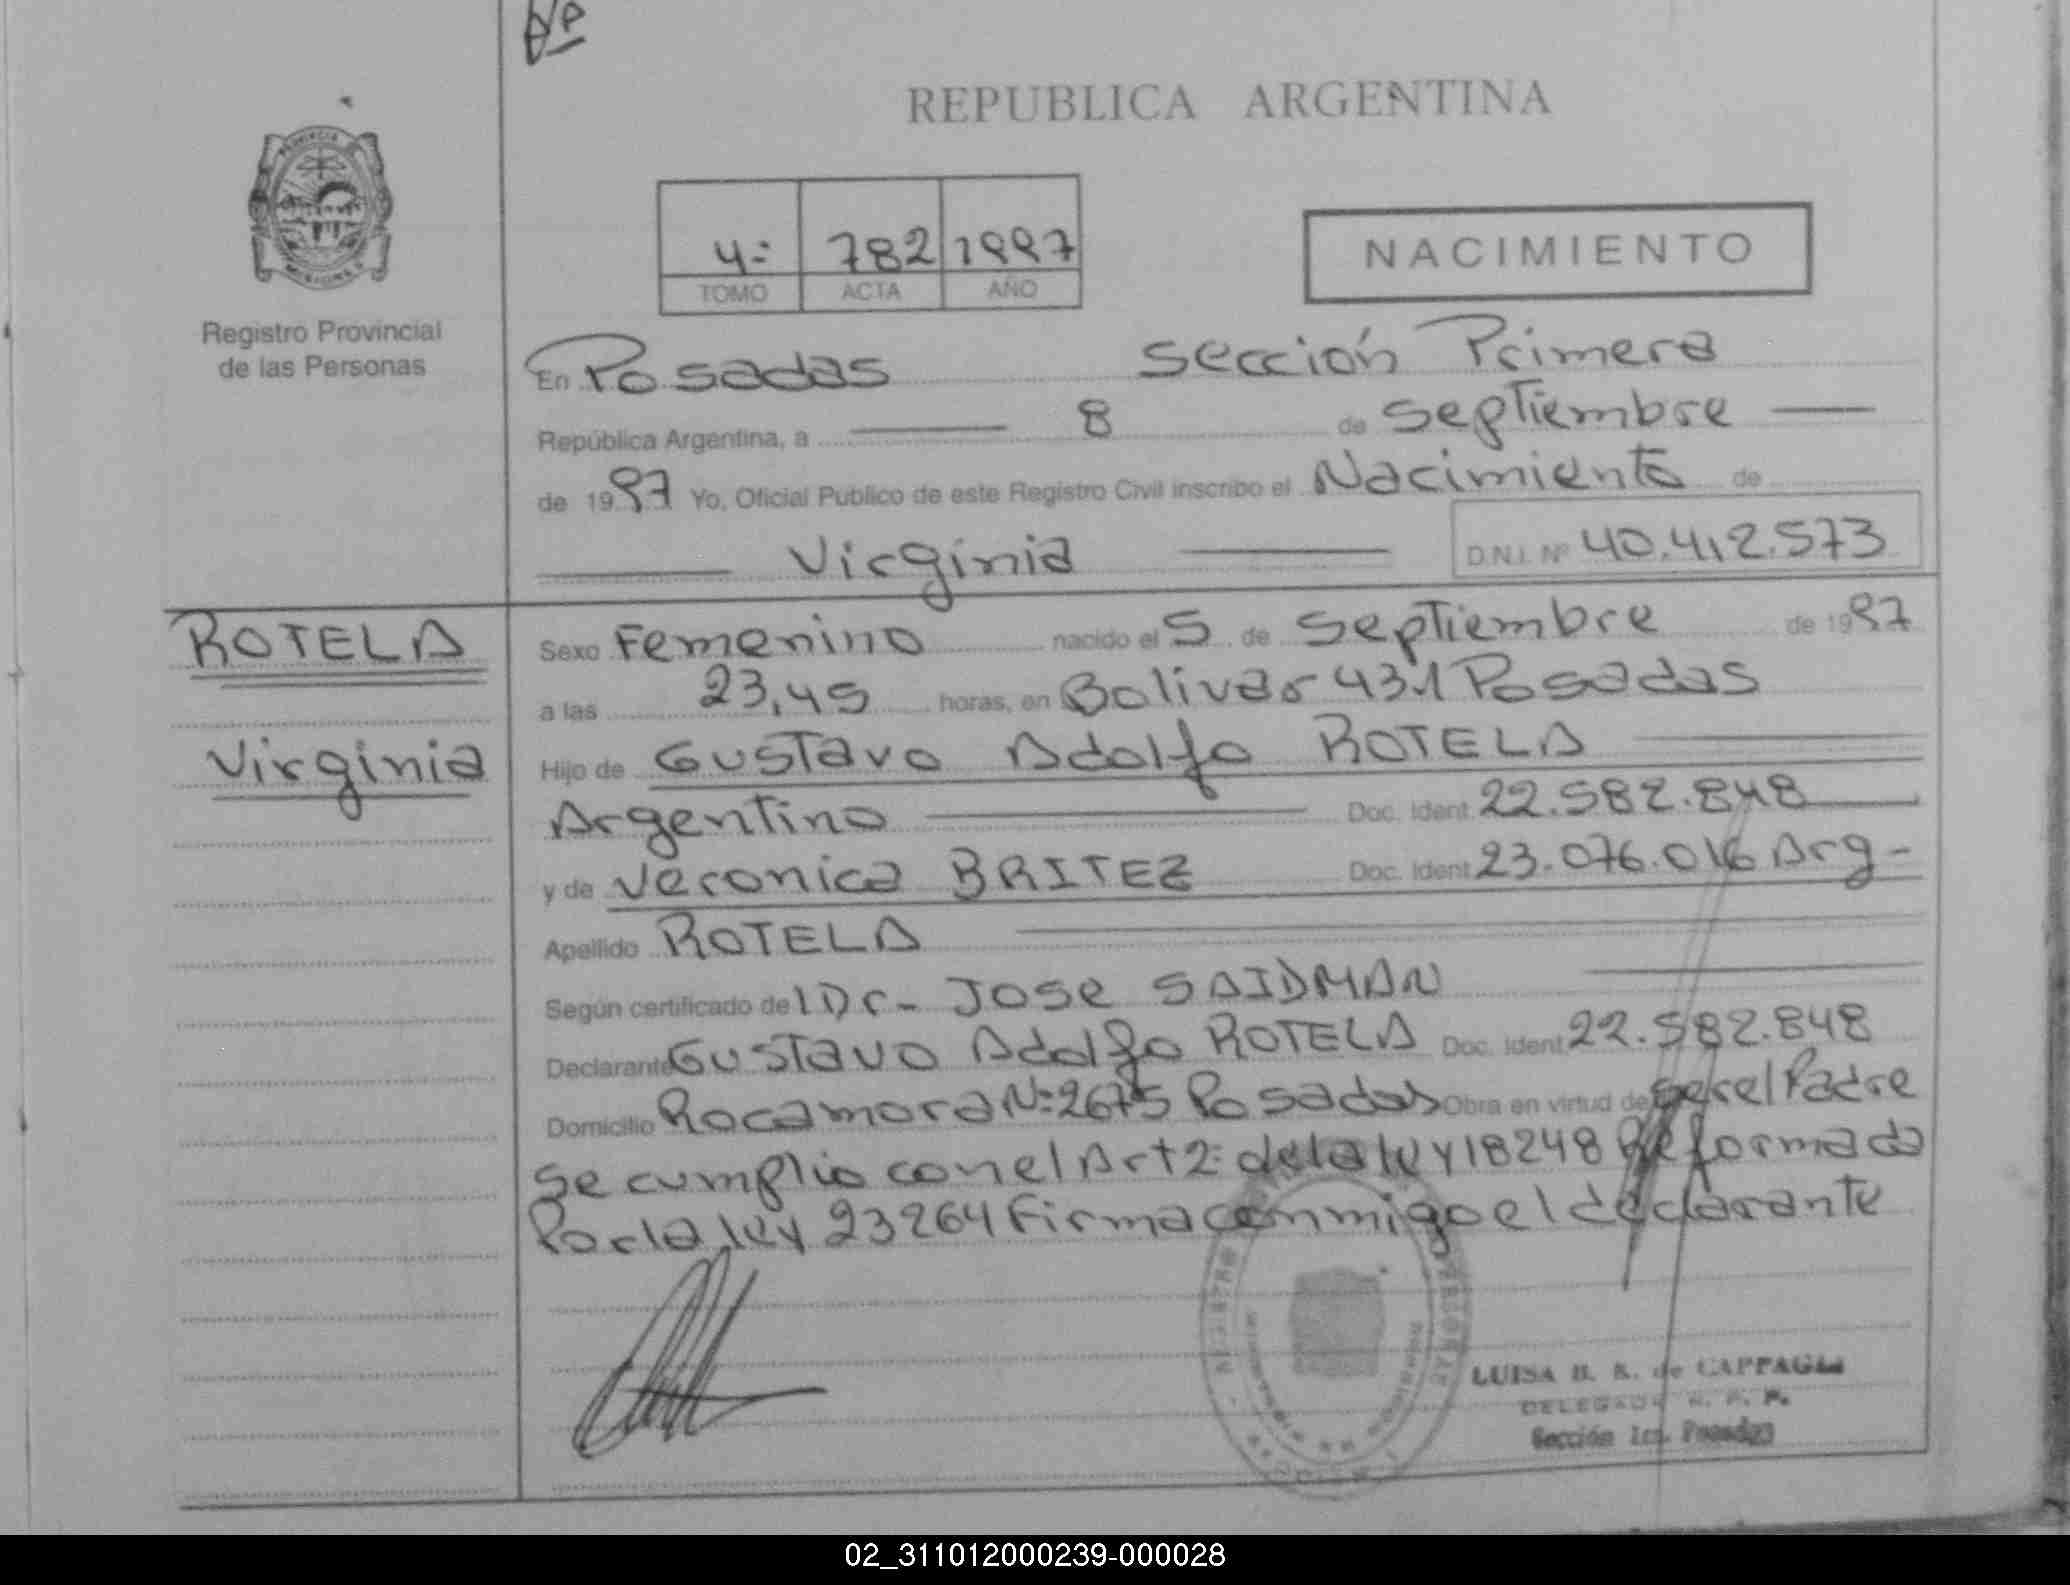 Nº
REPUBLICA ARGENTINA
PROVINCIA
MISIONES
Registro Provincial
de las Personas
4= 782 1997
TOMO ACTA AÑO
NACIMIENTO
En Posadas Sección Primera
República Argentina, a 8 de Septiembre
de 1997 Yo, Oficial Público de este Registro Civil inscribo el Nacimiento de
Virginia D.N.I. Nº 40.412.573
ROTELA
Virginia
Sexo Femenino nacido el 5 de Septiembre de 1997
a las 23,45 horas, en Bolivar 431 Posadas
Hijo de Gustavo Adolfo ROTELA
Argentino Doc. Ident. 22.582.848
y de Veronica BRITEZ Doc. Ident. 23.076.016 Arg-
Apellido ROTELA
Según certificado de l Dr- Jose SAIDMAN
Declarante Gustavo Adolfo ROTELA Doc. Ident. 22.582.848
Domicilio Rocamora Nº 2675 Posadas Obra en virtud de ser el Padre
Se cumplio con el Art 2= de la ley 18248 Reformada
Por la ley 23264 Firma conmigo el declarante
LUISA B. K. de CAPPAGLI
DELEGADA R. P. P.
Sección 1ra. Posadas
02_311012000239-000028